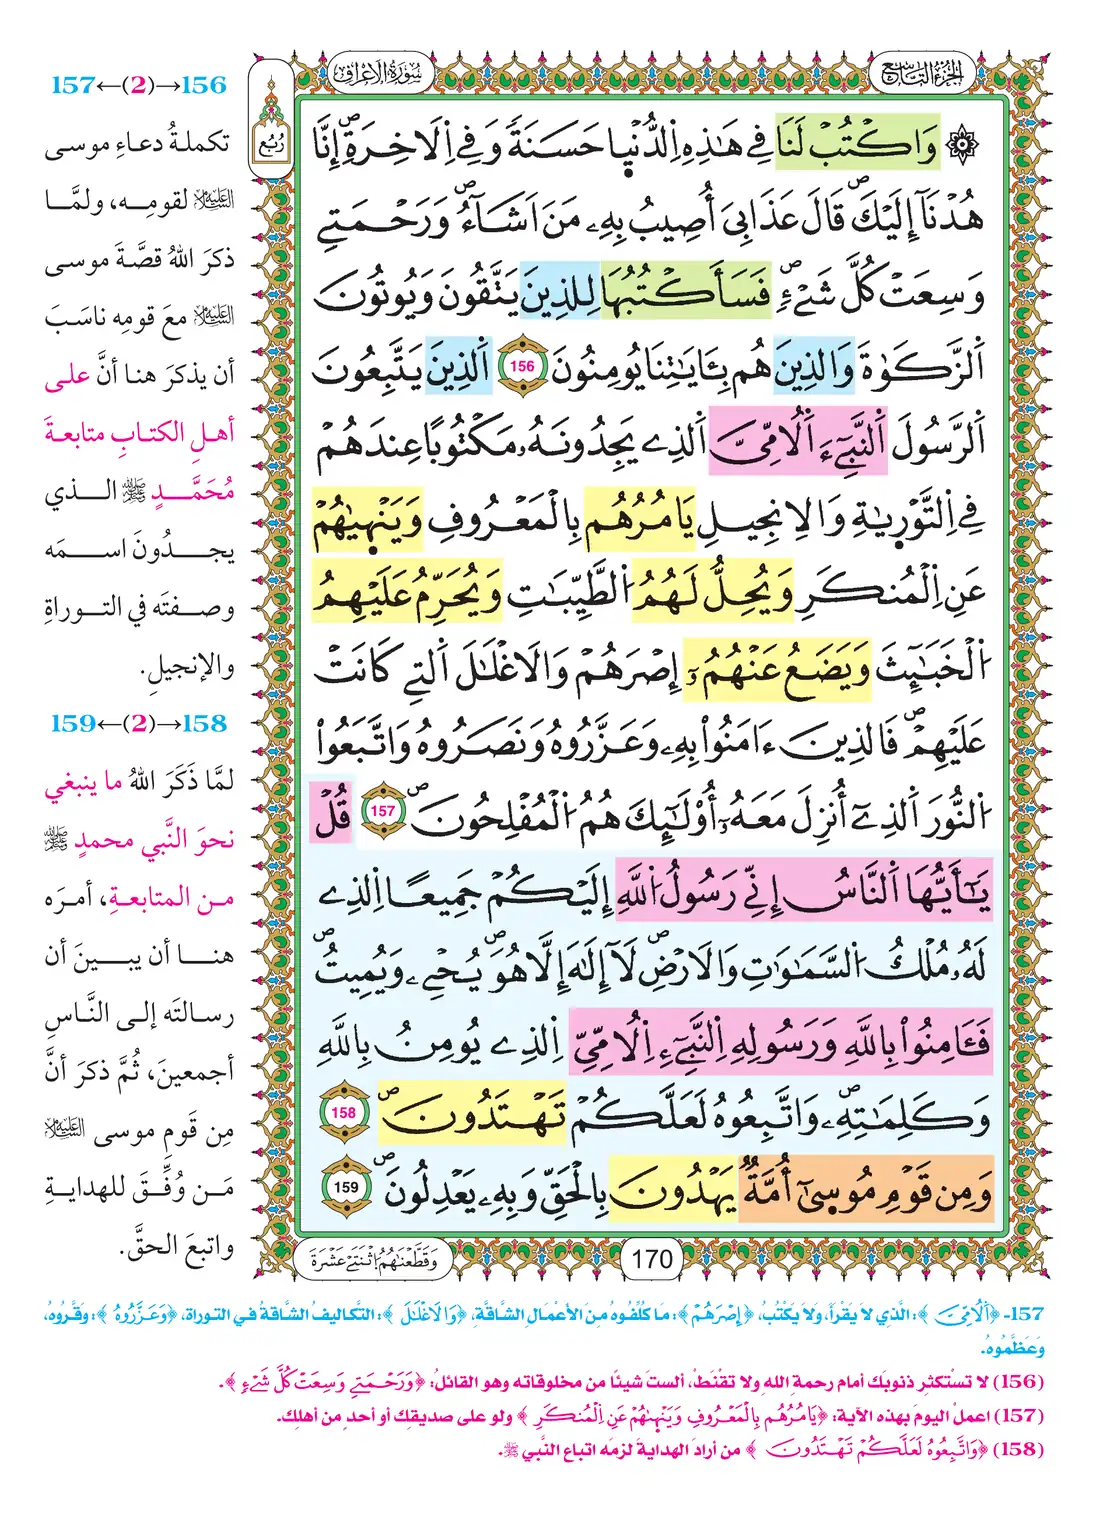 الجزء التاسع
سورة الاعراف
ربع
۞ وَاكْتُبْ لَنَا فِي هَٰذِهِ اِلدُّنْيا حَسَنَةً وَفِي اِلَاخِرَةِۖ إِنَّا
هُدْنَآ إِلَيْكَۖ قَالَ عَذَابِيَ أُصِيبُ بِهِۦ مَنَ اَشَآءُۖ وَرَحْمَتِے
وَسِعَتْ كُلَّ شَےْءٖۖ فَسَأَكْتُبُهَا لِلذِينَ يَتَّقُونَ وَيُوتُونَ
اَلزَّكَوٰةَ وَالذِينَ هُم بِـَٔايَٰتِنَا يُومِنُونَ 156 اَلذِينَ يَتَّبِعُونَ
اَلرَّسُولَ اَلنَّبِےٓءَ اَلُامِّيَّ اَلذِے يَجِدُونَهُۥ مَكْتُوباً عِندَهُمْ
فِي اِلتَّوْر۪يٰةِ وَالِانجِيلِ يَامُرُهُم بِالْمَعْرُوفِ وَيَنْه۪يٰهُمْ
عَنِ اِلْمُنكَرِ وَيُحِلُّ لَهُمُ اُلطَّيِّبَٰتِ وَيُحَرِّمُ عَلَيْهِمُ
اُلْخَبَٰٓئِثَ وَيَضَعُ عَنْهُمُۥٓ إِصْرَهُمْ وَالَاغْلَٰلَ اَلتِے كَانَتْ
عَلَيْهِمْۖ فَالذِينَ ءَامَنُواْ بِهِۦ وَعَزَّرُوهُ وَنَصَرُوهُ وَاتَّبَعُواْ
اُلنُّورَ اَلذِےٓ أُنزِلَ مَعَهُۥٓ أُوْلَٰٓئِكَ هُمُ اُلْمُفْلِحُونَۖ 157 قُلْ
يَٰٓأَيُّهَا اَلنَّاسُ إِنِّي رَسُولُ اُللَّهِ إِلَيْكُمْ جَمِيعاً اِلذِے
لَهُۥ مُلْكُ اُلسَّمَٰوَٰتِ وَالَارْضِۖ لَآ إِلَٰهَ إِلَّا هُوَۖ يُحْيِۦ وَيُمِيتُۖ
فَـَٔامِنُواْ بِاللَّهِ وَرَسُولِهِ اِلنَّبِےٓءِ اِلُامِّيِّ اِلذِے يُومِنُ بِاللَّهِ
وَكَلِمَٰتِهِۦۖ وَاتَّبِعُوهُ لَعَلَّكُمْ تَهْتَدُونَۖ 158
وَمِن قَوْمِ مُوس۪يٰٓ أُمَّةٌ يَهْدُونَ بِالْحَقِّ وَبِهِۦ يَعْدِلُونَۖ 159
170
وَقَطَّعْنَٰهُمُ اُثْنَتَےْ عَشْرَةَ
156→(2)←157
تكملةُ دعاءِ موسى
عليه السلام لقومِه، ولمَّا
ذكرَ اللهُ قصَّةَ موسى
عليه السلام معَ قومِه ناسَبَ
أن يذكرَ هنا أنَّ على
أهلِ الكتابِ متابعةَ
مُحَمَّدٍ ﷺ الذي
يجدُونَ اسمَه
وصفتَه في التوراةِ
والإنجيلِ.
158→(2)←159
لمَّا ذَكَرَ اللهُ ما ينبغي
نحوَ النَّبي محمدٍ ﷺ
من المتابعةِ، أمرَه
هنا أن يبينَ أن
رسالتَه إلى النَّاسِ
أجمعينَ، ثُمَّ ذكرَ أنَّ
مِن قَومِ موسى عليه السلام
مَن وُفِّقَ للهدايةِ
واتبعَ الحقَّ.
157- ﴿اَلُامِّيَّ﴾: الَّذِي لاَ يَقْرَأُ، وَلاَ يَكْتُبُ، ﴿إِصْرَهُمْ﴾: مَا كُلِّفُوهُ مِنَ الأَعْمَالِ الشَّاقَّةِ، ﴿وَالَاغْلَٰلَ﴾: التَّكَالِيفُ الشَّاقَةُ فِي التوراة، ﴿وَعَزَّرُوهُ﴾: وَقَّرُوهُ،
وَعَظَّمُوهُ.
(156) لا تستكثِر ذنوبَك أمام رحمةِ اللهِ ولا تقنَطْ، ألستَ شيئًا من مخلوقاتِه وهو القائلُ: ﴿وَرَحْمَتِے وَسِعَتْ كُلَّ شَےْءٖ﴾.
(157) اعملْ اليومَ بهذه الآيةِ: ﴿يَامُرُهُم بِالْمَعْرُوفِ وَيَنْهَىٰهُمْ عَنِ اِلْمُنكَرِ﴾ ولو على صديقِك أو أحدٍ من أهلِك.
(158) ﴿وَاتَّبِعُوهُ لَعَلَّكُمْ تَهْتَدُونَ﴾ من أرادَ الهدايةَ لزمَه اتباعُ النَّبي ﷺ.